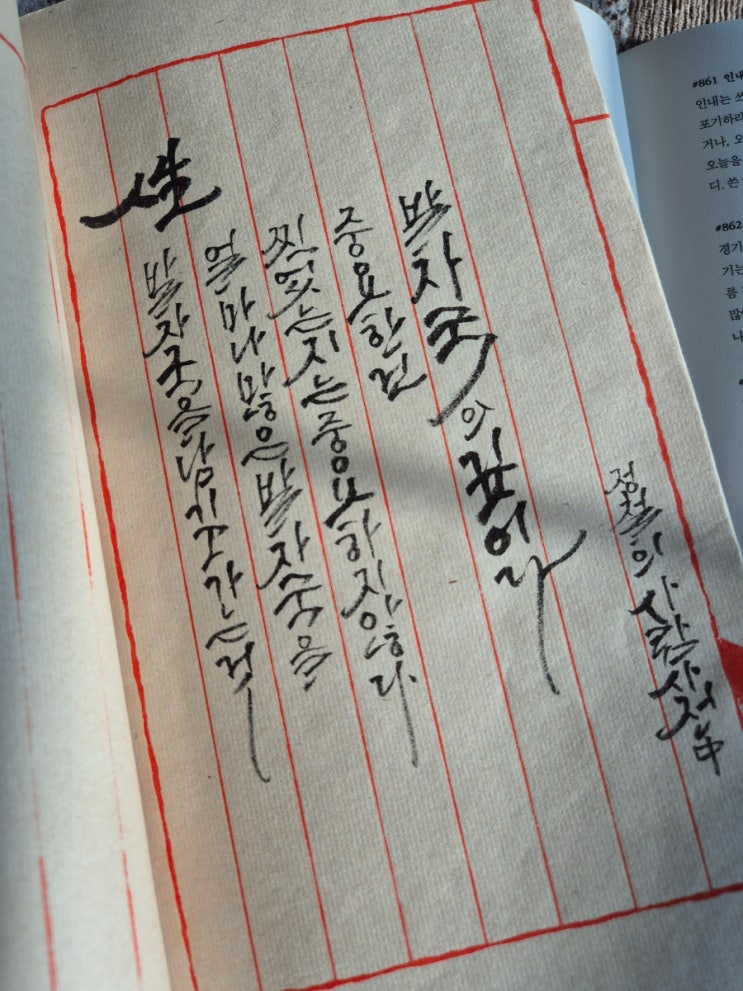 人生
발자국을 남기고 가는 것
얼마나 많은 발자국을
찍었는지는 중요하지 않다
중요한 건
발자국의 깊이다
정철의 사람사전 中
#861 인내
인내는
포기하라
거나, 오
오늘을
디. 쓴
#862
경기
기는
름
많
나